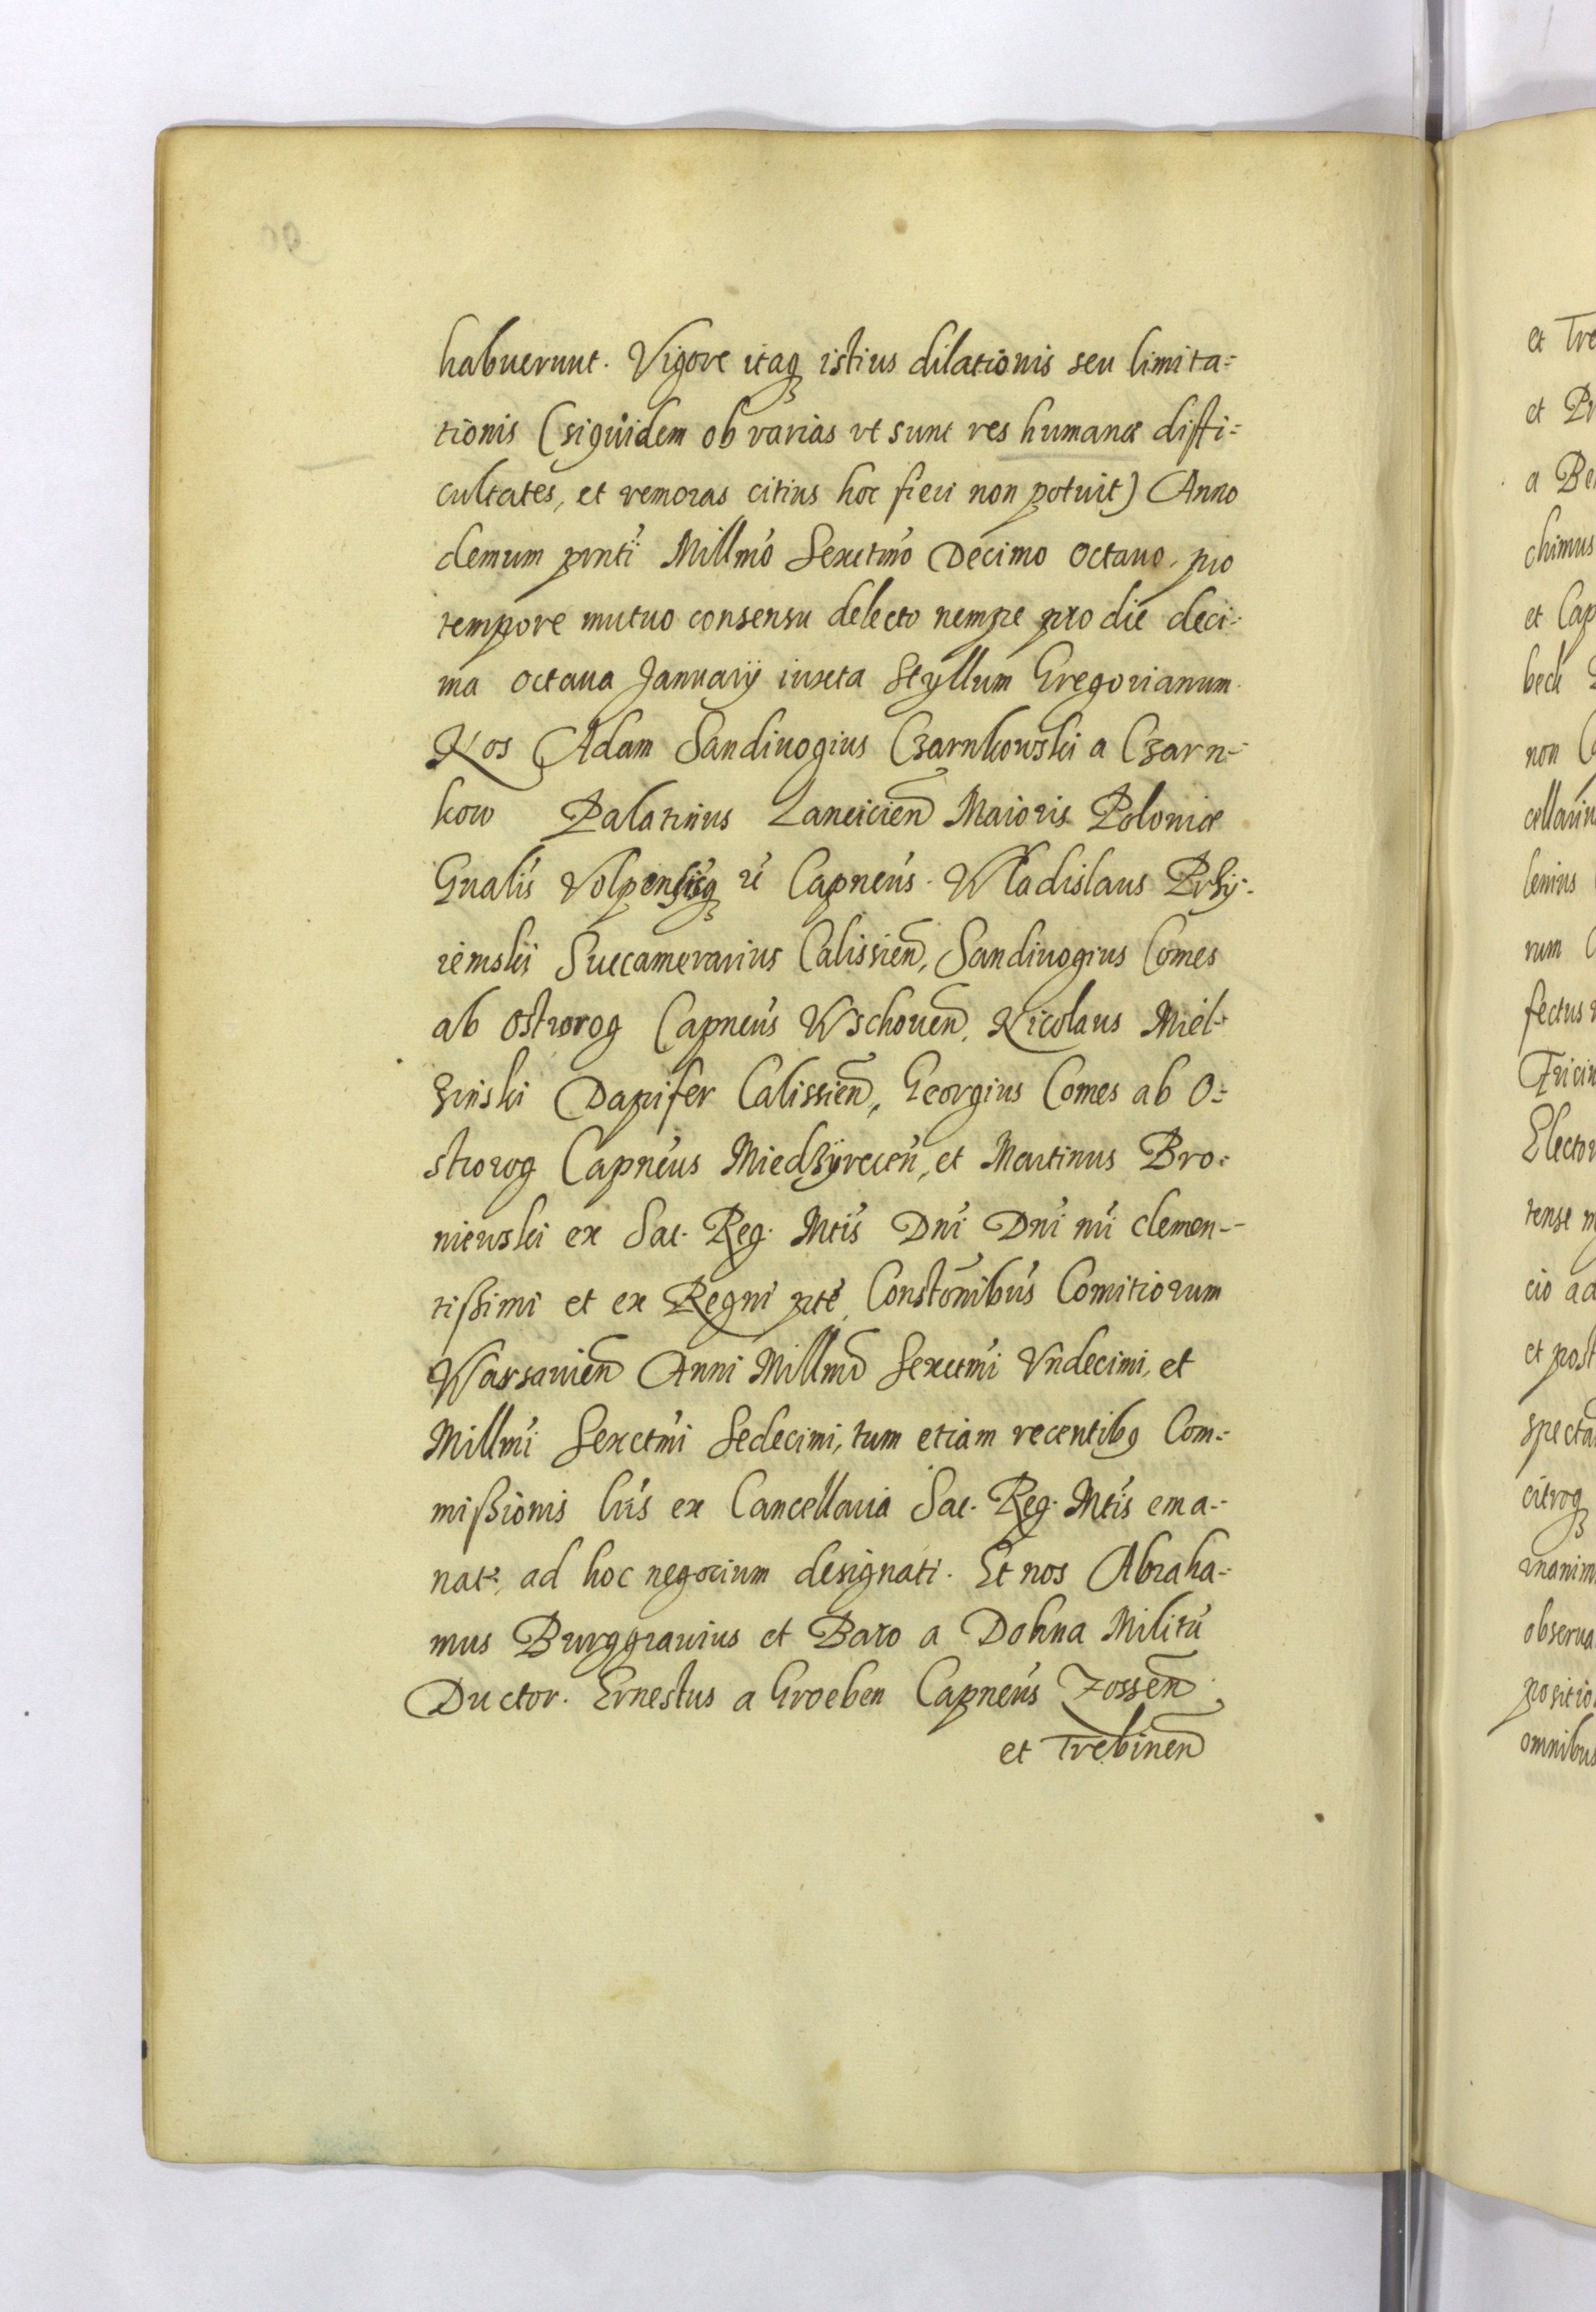 habuerunt. Vigore itaq istius dilationis seu limita=
tionis (siquidem ob varias vt sunt res humanæ diffi=
cultates, et remoras citius hoc fieri non potuit) Anno
demum pnti Millmo Sexctmo Decimo Octauo, pro
tempore mutuo consensu delecto nempe pro die deci=
ma octaua Januarij iuxta Styllum Gregorianum.
Nos Adam Sandiuogius Czarnkowski a Czarn=
kow Palatinus Lancicien Maioris Poloniæ
Gnalis Volpensisq Capneus. Wladislaus Przy=
iemskij Succamerarius Calissien, Sandiuogius Comes
ab Ostrorog Capneus Wschouen, Nicolaus Miel=
zinski Dapifer Calissien, Georgius Comes ab O=
strorog Capneus Miedzyrecen, et Martinus Bro=
niewski ex Sac. Reg. Mtis Dni Dni nri clemen=
tißimi et ex Regni pte, Constonibus Comitiorum
Warsauien Anni Millmi Sexctmi Vndecimi, et
Millmi Sexctmi Sedecimi, tum etiam recentibq Com=
mißionis lris ex Cancellaria Sac. Reg. Mtis ema=
nat: ad hoc negocium designati. Et nos Abraha=
mus Burggrauius et Baro a Dohna Militu
Ductor. Ernestus a Groeben Capneus Zossen
et Trebinen
et Tre
et Pr
chimus
et Cap
beck
non
lenius
rum
fectus
Elector
cio ad
et post
citroq
omnibus